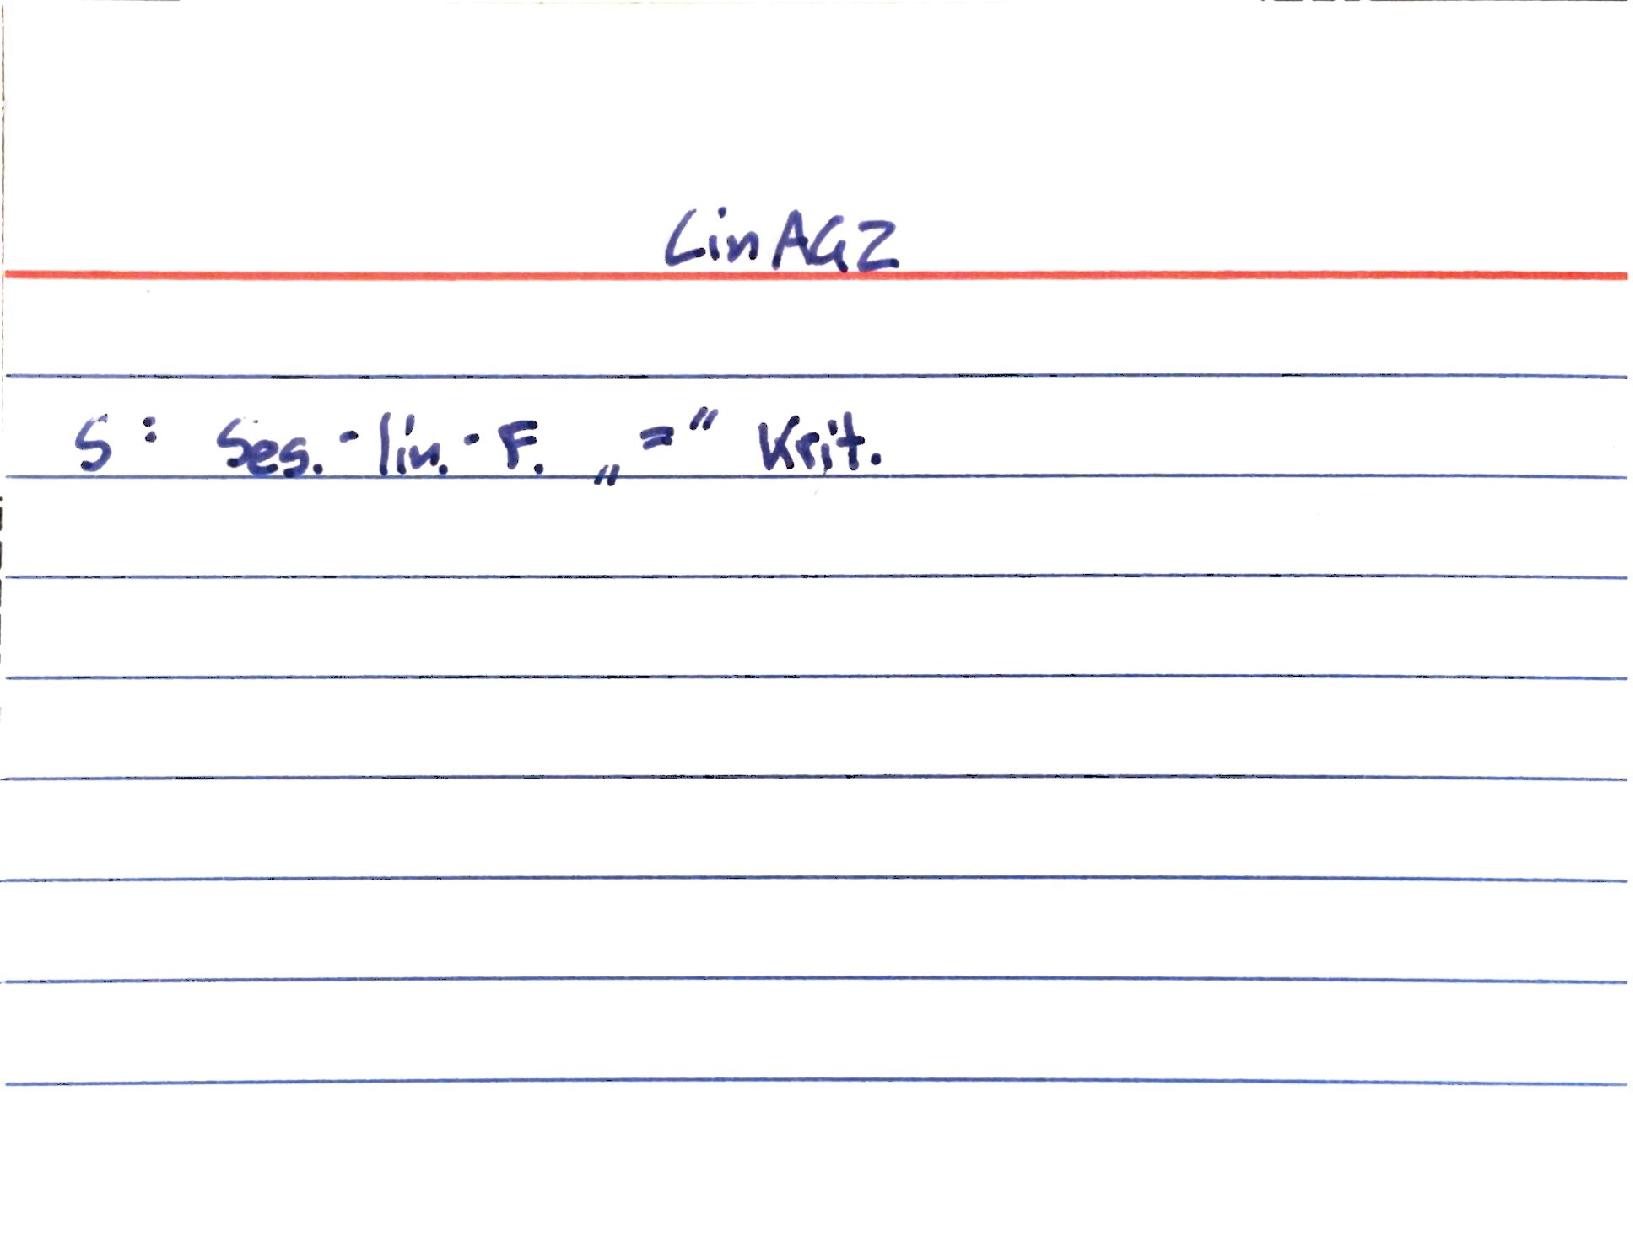 LinAG2
S: Ses.-lin.-F. „=“ Krit.